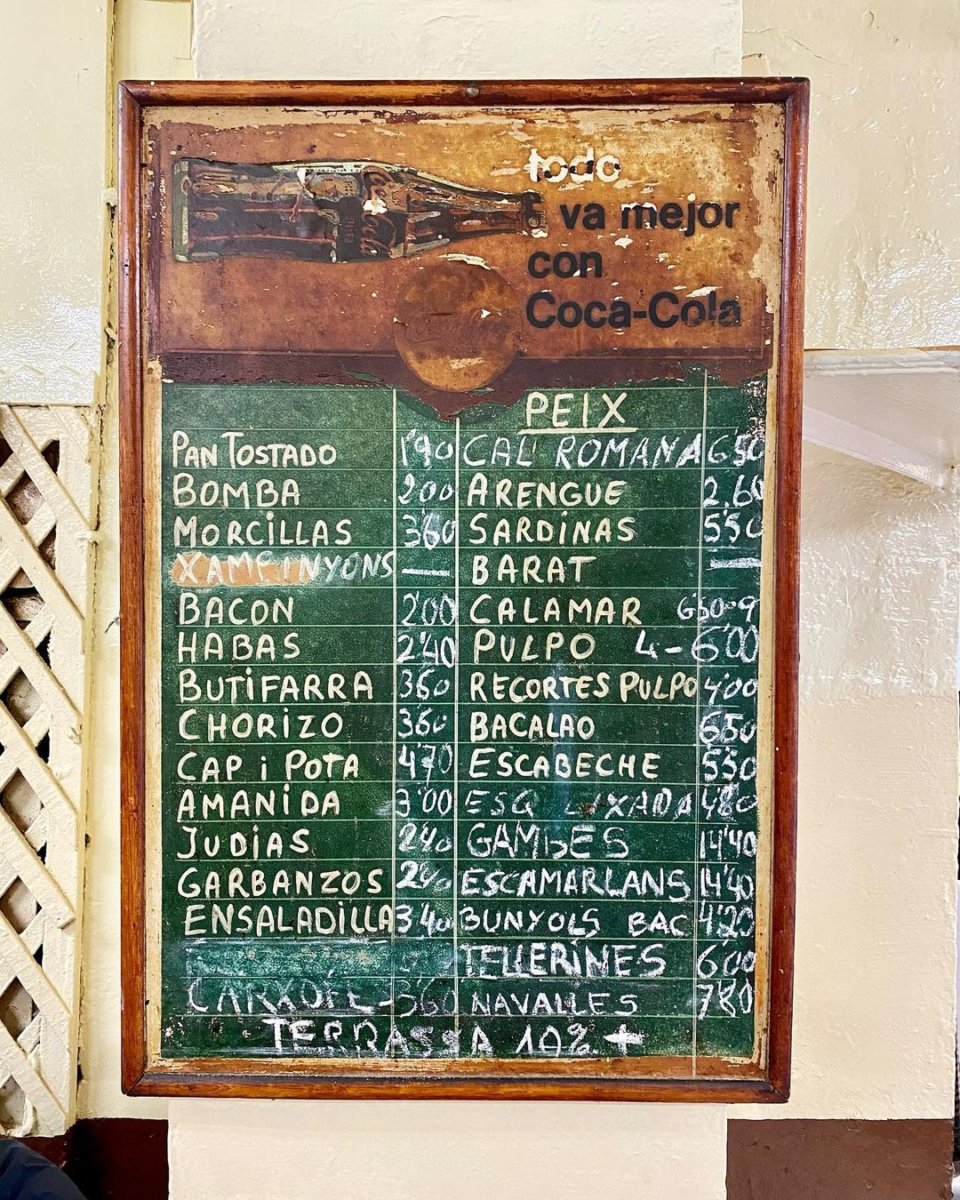 todo
va mejor
con
Coca-Cola
PEIX
PAN TOSTADO 1'90 CAL' ROMANA 6'50
BOMBA 200 ARENGUE 2.60
MORCILLAS 3'60 SARDINAS 5'50
XAMPINYONS — BARAT —
BACON 2'00 CALAMAR 650-9
HABAS 2'40 PULPO 4-6'00
BUTIFARRA 360 RECORTES PULPO 4'00
CHORIZO 360 BACALAO 650
CAP i POTA 4'70 ESCABECHE 550
AMANIDA 3'00 ESQ 480
JUDIAS 240 GAMBES 14'40
GARBANZOS 240 ESCAMARLANS 14'40
ENSALADILLA 3'40 BUNYOLS BAC 4'20
TELLERINES 600
CARXOFE 360 NAVALLES 780
TERRASSA 10% +